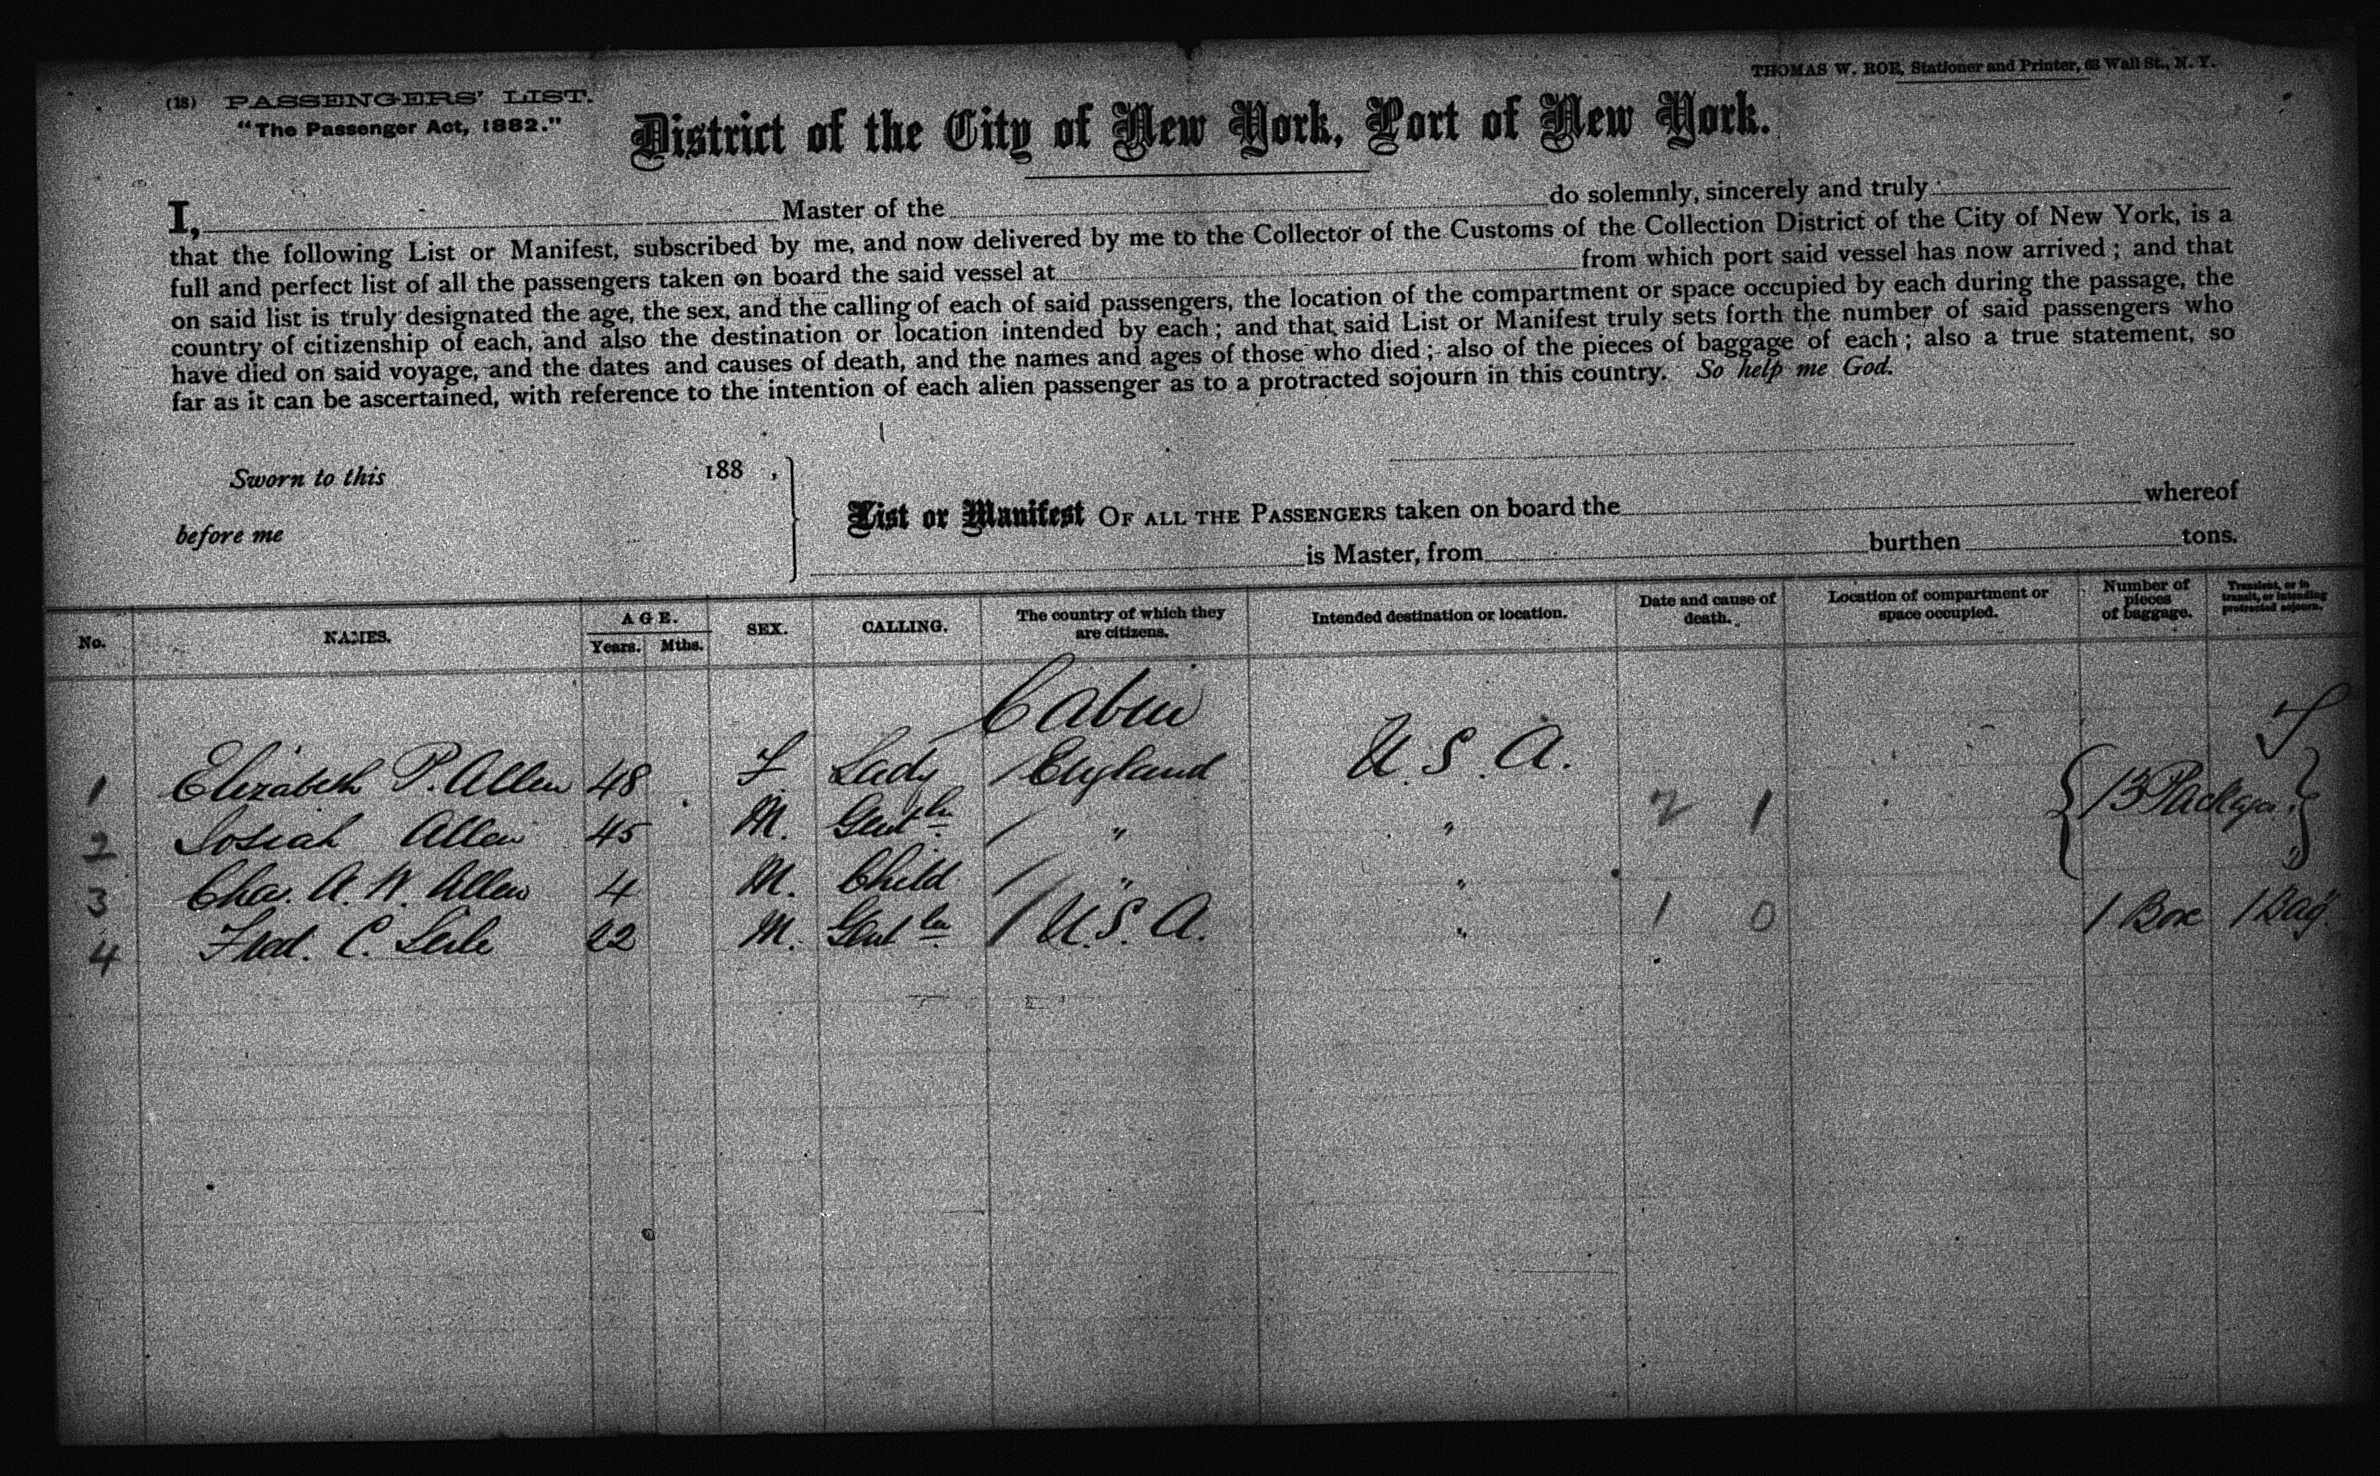 (18) PASSENGERS' LIST.
THOMAS W. ROE, Stationer and Printer, 63 Wall St., N. Y.
"The Passenger Act, 1882."
District of the City of New York, Port of New York.
I, Master of the do solemnly, sincerely and truly
that the following List or Manifest, subscribed by me, and now delivered by me to the Collector of the Customs of the Collection District of the City of New York, is a
full and perfect list of all the passengers taken on board the said vessel at from which port said vessel has now arrived; and that
on said list is truly designated the age, the sex, and the calling of each of said passengers, the location of the compartment or space occupied by each during the passage, the
country of citizenship of each, and also the destination or location intended by each; and that said List or Manifest truly sets forth the number of said passengers who
have died on said voyage, and the dates and causes of death, and the names and ages of those who died; also of the pieces of baggage of each; also a true statement, so
far as it can be ascertained, with reference to the intention of each alien passenger as to a protracted sojourn in this country. So help me God.
Sworn to this 188 ,
before me
List or Manifest OF ALL THE PASSENGERS taken on board the whereof
is Master, from burthen tons.
No. NAMES. AGE. Years. Mths. SEX. CALLING. The country of which they are citizens. Intended destination or location. Date and cause of death. Location of compartment or space occupied. Number of pieces of baggage. Transient, or in transit, or intending protracted sojourn.
Cabin
1 Elizabeth P. Allen 48 F Lady / England U. S. A. 13 Packages
2 Josiah Allen 45 M. Gentln / " " 2 1
3 Chas. A. W. Allen 4 M. Child / " "
4 Fred. C. 22 M. Gentln / U. S. A. " 1 0 1 Box 1 Bag